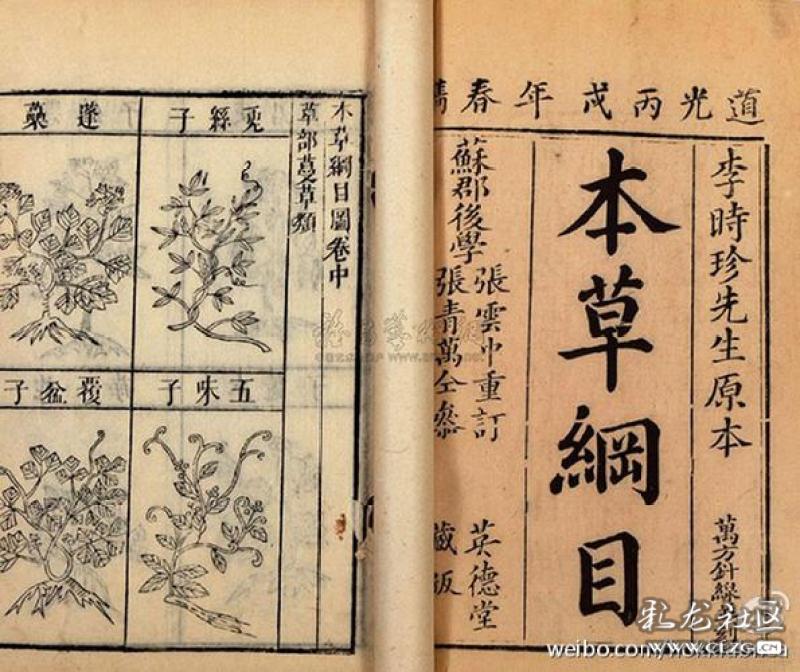 道光丙戌年春鐫
李時珍先生原本
萬方針線
本草綱目
蘇郡後學
張雲中重訂
張青萬仝參
英德堂
藏板
本草綱目圖卷中
草部蔓草類
兎絲子
蓬蘽
五味子
覆盆子
乱龙社区
weibo.com/
www.clzg.cn